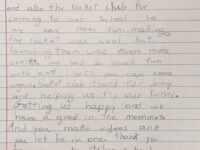 and also the rocket club for
coming to our school so
we can have fun making
the rocket was cool but as
launching them was even more
cooler we had so much fun
with and miss you can come
again Rocket club thank for doing
and helping us fly our
Getting us happy and we
have a good in the
And you make videos and
you let be in one. Thank you